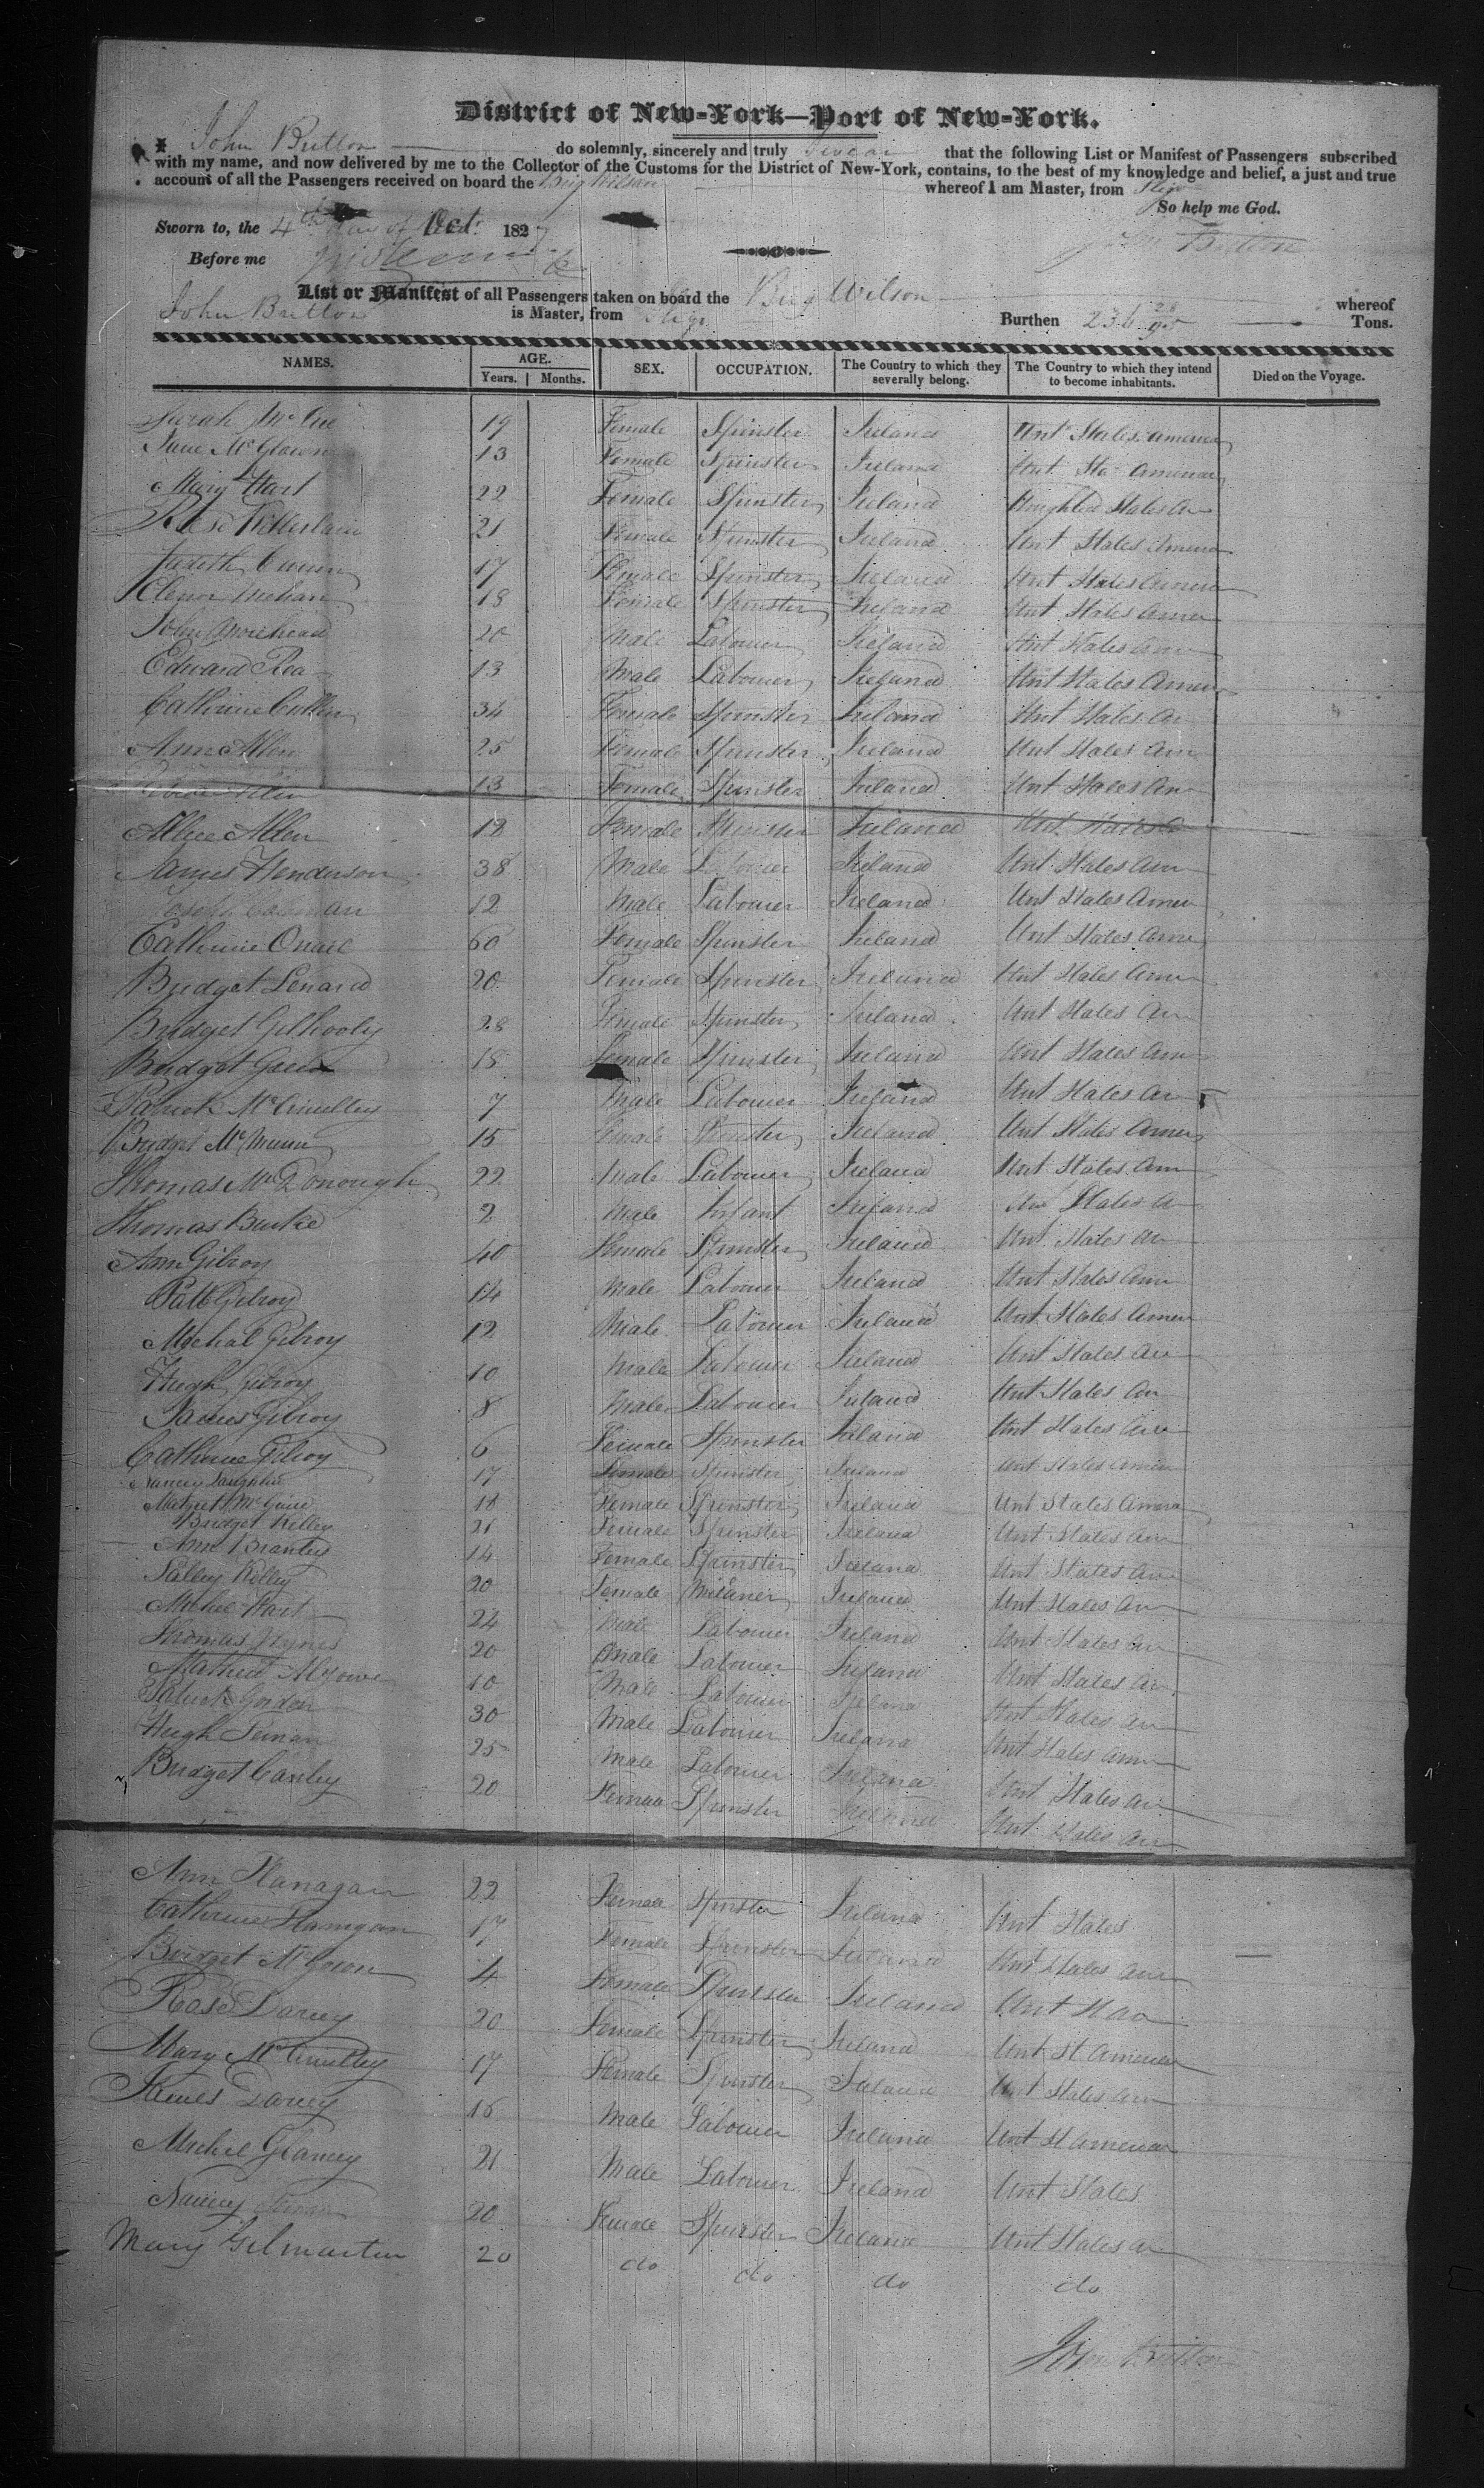 District of New-York—Port of New-York.
I John Britton do solemnly, sincerely and truly swear that the following List or Manifest of Passengers subscribed
with my name, and now delivered by me to the Collector of the Customs for the District of New-York, contains, to the best of my knowledge and belief, a just and true
account of all the Passengers received on board the Brig Wilson whereof I am Master, from Sligo
So help me God.
Sworn to, the 4th day of Oct. 1827 John Britton
Before me
List or Manifest of all Passengers taken on board the Brig Wilson whereof
John Britton is Master, from Sligo Burthen 236 28/95 Tons.
NAMES. AGE. SEX. OCCUPATION. The Country to which they severally belong. The Country to which they intend to become inhabitants. Died on the Voyage.
Years. Months.
Sarah Mc Cue 19 Female Spinster Ireland Unt States America
Jane McGlown 13 Female Spinster Ireland Unt Sta America
Mary Hart 22 Female Spinster Ireland States Am
Rose 21 Female Spinster Ireland Unt States America
Judith 17 Female Spinster Ireland Unt States America
Elenor Mehan 18 Female Spinster Ireland Unt States Amer
John Moorehead 20 Male Labourer Ireland Unt States Am
Edward Rea 13 Male Labourer Ireland Unt States Amer
Catherine Cullen 34 Female Spinster Ireland Unt States Am
Ann Allen 25 Female Spinster Ireland Unt States Am
Allen 13 Female Spinster Ireland Unt States Am
Allice Allen 12 Female Spinster Ireland Unt States
James Henderson 38 Male Labourer Ireland Unt States Am
Joseph 12 Male Labourer Ireland Unt States Amer
Catherine Oneil 60 Female Spinster Ireland Unt States Ame
Bridget Lenard 20 Female Spinster Ireland Unt States Am
Bridget Gilhooly 28 Female Spinster Ireland Unt States Am
Bridget 15 Female Spinster Ireland Unt States Am
Patrick McCinulley 7 Male Labourer Ireland Unt States Am
Bridget McMunn 15 Female Spinster Ireland Unt States Amer
Thomas McDonough 22 Male Labourer Ireland Unt States Am
Thomas Burke 2 Male Infant Ireland Unt States A
Ann Gilroy 40 Female Spinster Ireland Unt States Am
Patt Gilroy 14 Male Labourer Ireland Unt States Am
Michal Gilroy 12 Male Labourer Ireland Unt States Amer
Hugh Gilroy 10 Male Labourer Ireland Unt States Am
James Gilroy 8 Male Labourer Ireland Unt States Am
Catherine Gilroy 6 Female Spinster Ireland Unt States Am
Nancy 17 Female Spinster Ireland Unt States Amer
McGuire 18 Female Spinster Ireland Unt States America
Bridget Kelley 21 Female Spinster Ireland Unt States Am
Ann Branley 14 Female Spinster Ireland Unt States Am
Salley Kelley 20 Female Milaner Ireland Unt States Am
Michel Hart 24 Male Labourer Ireland Unt States Am
Thomas 20 Male Labourer Ireland Unt States Am
10 Male Labourer Ireland Unt States Am
Patrick Gordon 30 Male Labourer Ireland Unt States Am
Hugh 25 Male Labourer Ireland Unt States Am
Bridget Canley 20 Femaa Spinster Ireland Unt States Am
Ann Flanagan 22 Femaa Spinster Ireland Unt States
Catherine Flanigan 17 Female Spinster Ireland Unt States Am
Bridget McGowen 4 Female Spinster Ireland Unt
Rose Darcey 20 Female Spinster Ireland Unt St America
Mary McCinulley 17 Female Spinster Ireland Unt States Am
James Darcey 15 Male Labourer Ireland Unt St America
Michel Glancey 21 Male Labourer Ireland Unt States
Nancy 20 Female Spinster Ireland Unt States Am
Mary Gilmartin 20 do do do do
John Britton